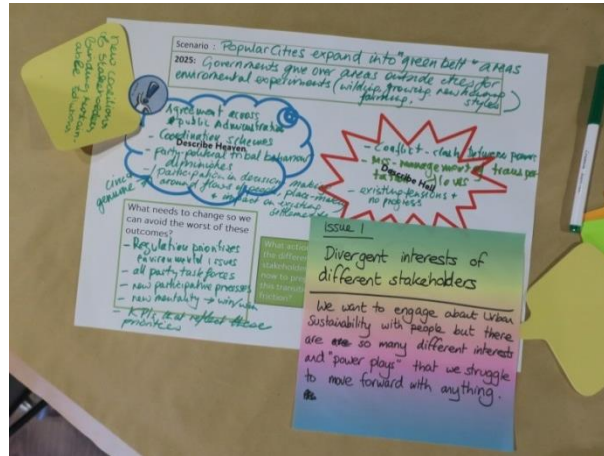 new coalitions
of stakeholders
Scenario : Popular Cities expand into "green belt" areas
2025: Governments give over areas outside cities for
environmental experiments (wilding, growing, new housing
farming, styles)
Agreement across
public Administration
- Coordination schemes
Describe Heaven
- party-political tribal behaviour
diminishes
- participation in decision making
genuine around place-making
+ impact on existing
settlements
- Conflict - clash between power
- Mis-management of transpor
Describe Hell
- existing tensions +
no progress
What needs to change so we
can avoid the worst of these
outcomes?
- Regulation prioritizes
environmental issues
- all party task forces
- new participative processes
- new mentality → win/win
- KPIs that reflect these
priorities
What action
the differen
stakeholde
now to pre
this transi
friction?
Issue 1
Divergent interests of
different stakeholders
We want to engage about Urban
Sustainability with people but there
are so many different interests
and "power plays" that we struggle
to move forward with anything.